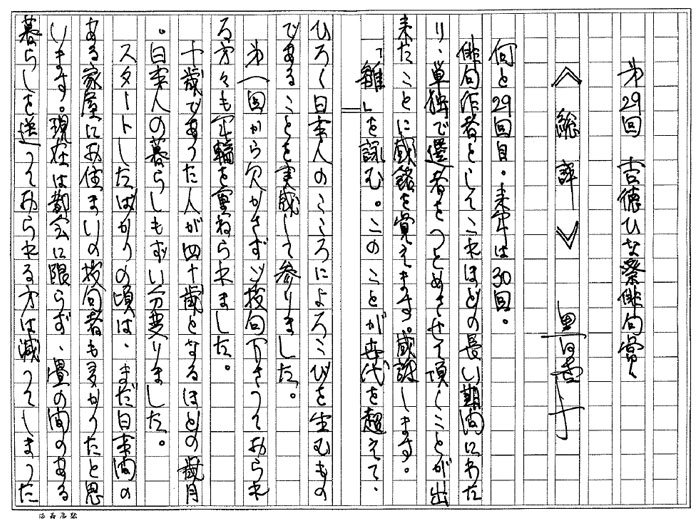 第29回 吉徳ひな祭俳句賞
《総評》 黒田杏子
何と29回目。来年は30回。
俳句作者としてこれほどの長い期間にわた
り、単独で選者をつとめさせて頂くことが出
来たことに感銘を覚えます。感謝します。
「雛」を詠む。このことが世代を超えて、
ひろく日本人のこころによろこびを生むもの
であることを実感して参りました。
第一回から欠かさず投句下さっておられ
る方々も年輪を重ねられました。
十歳であった人が四十歳となるほどの歳月
。日本人の暮らしもずい分変りました。
スタートしたばかりの頃は、まだ日本間の
ある家屋にお住まいの投句者も多かったと思
います。現在は都会に限らず、畳の間のある
暮らしを送っておられる方は減ってしまった